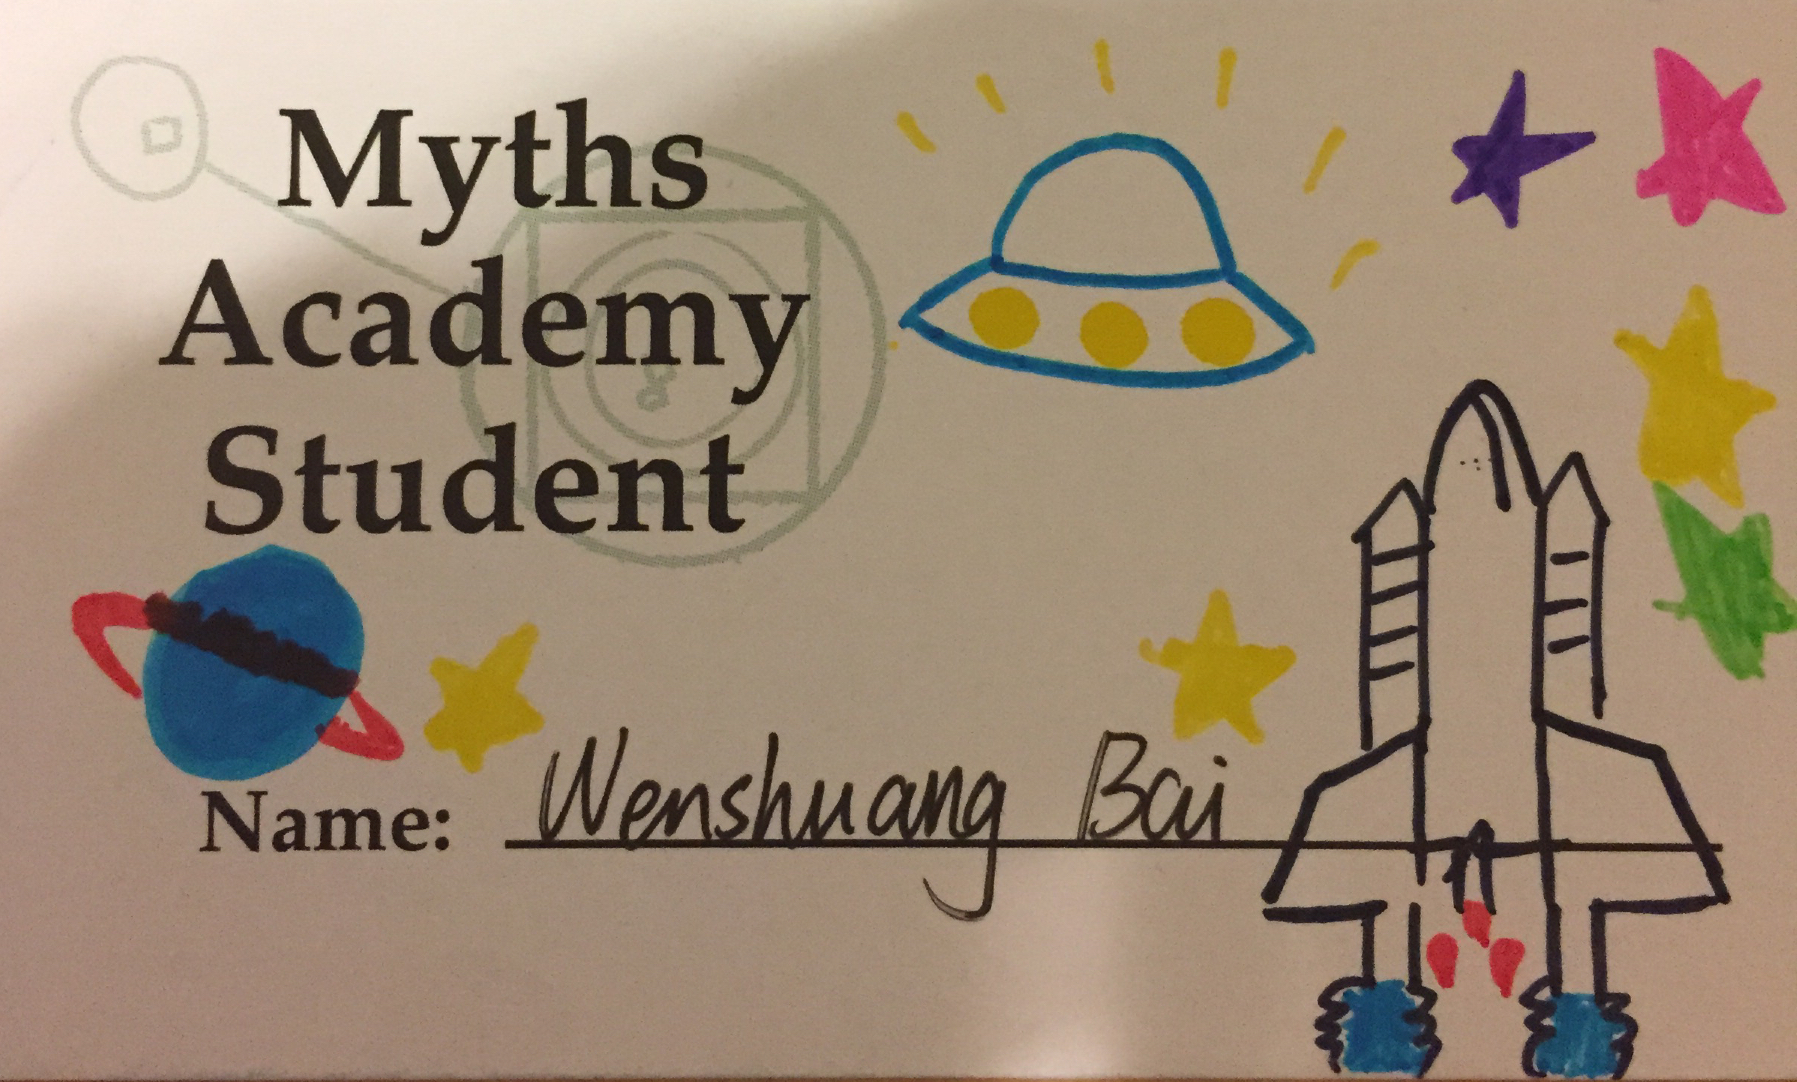 Myths
Academy
Student
Name: Wenshuang Bai